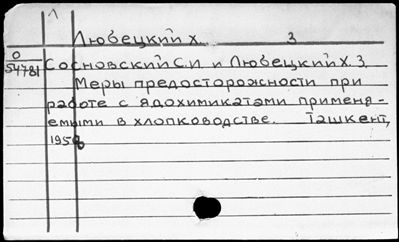 Л
Любецкий Х. З
О
54781
Сосновский С.И. и Любецкий Х.З.
Меры предосторожности при
работе с ядохимикатами применя-
емыми в хлопководстве. Ташкент,
1958